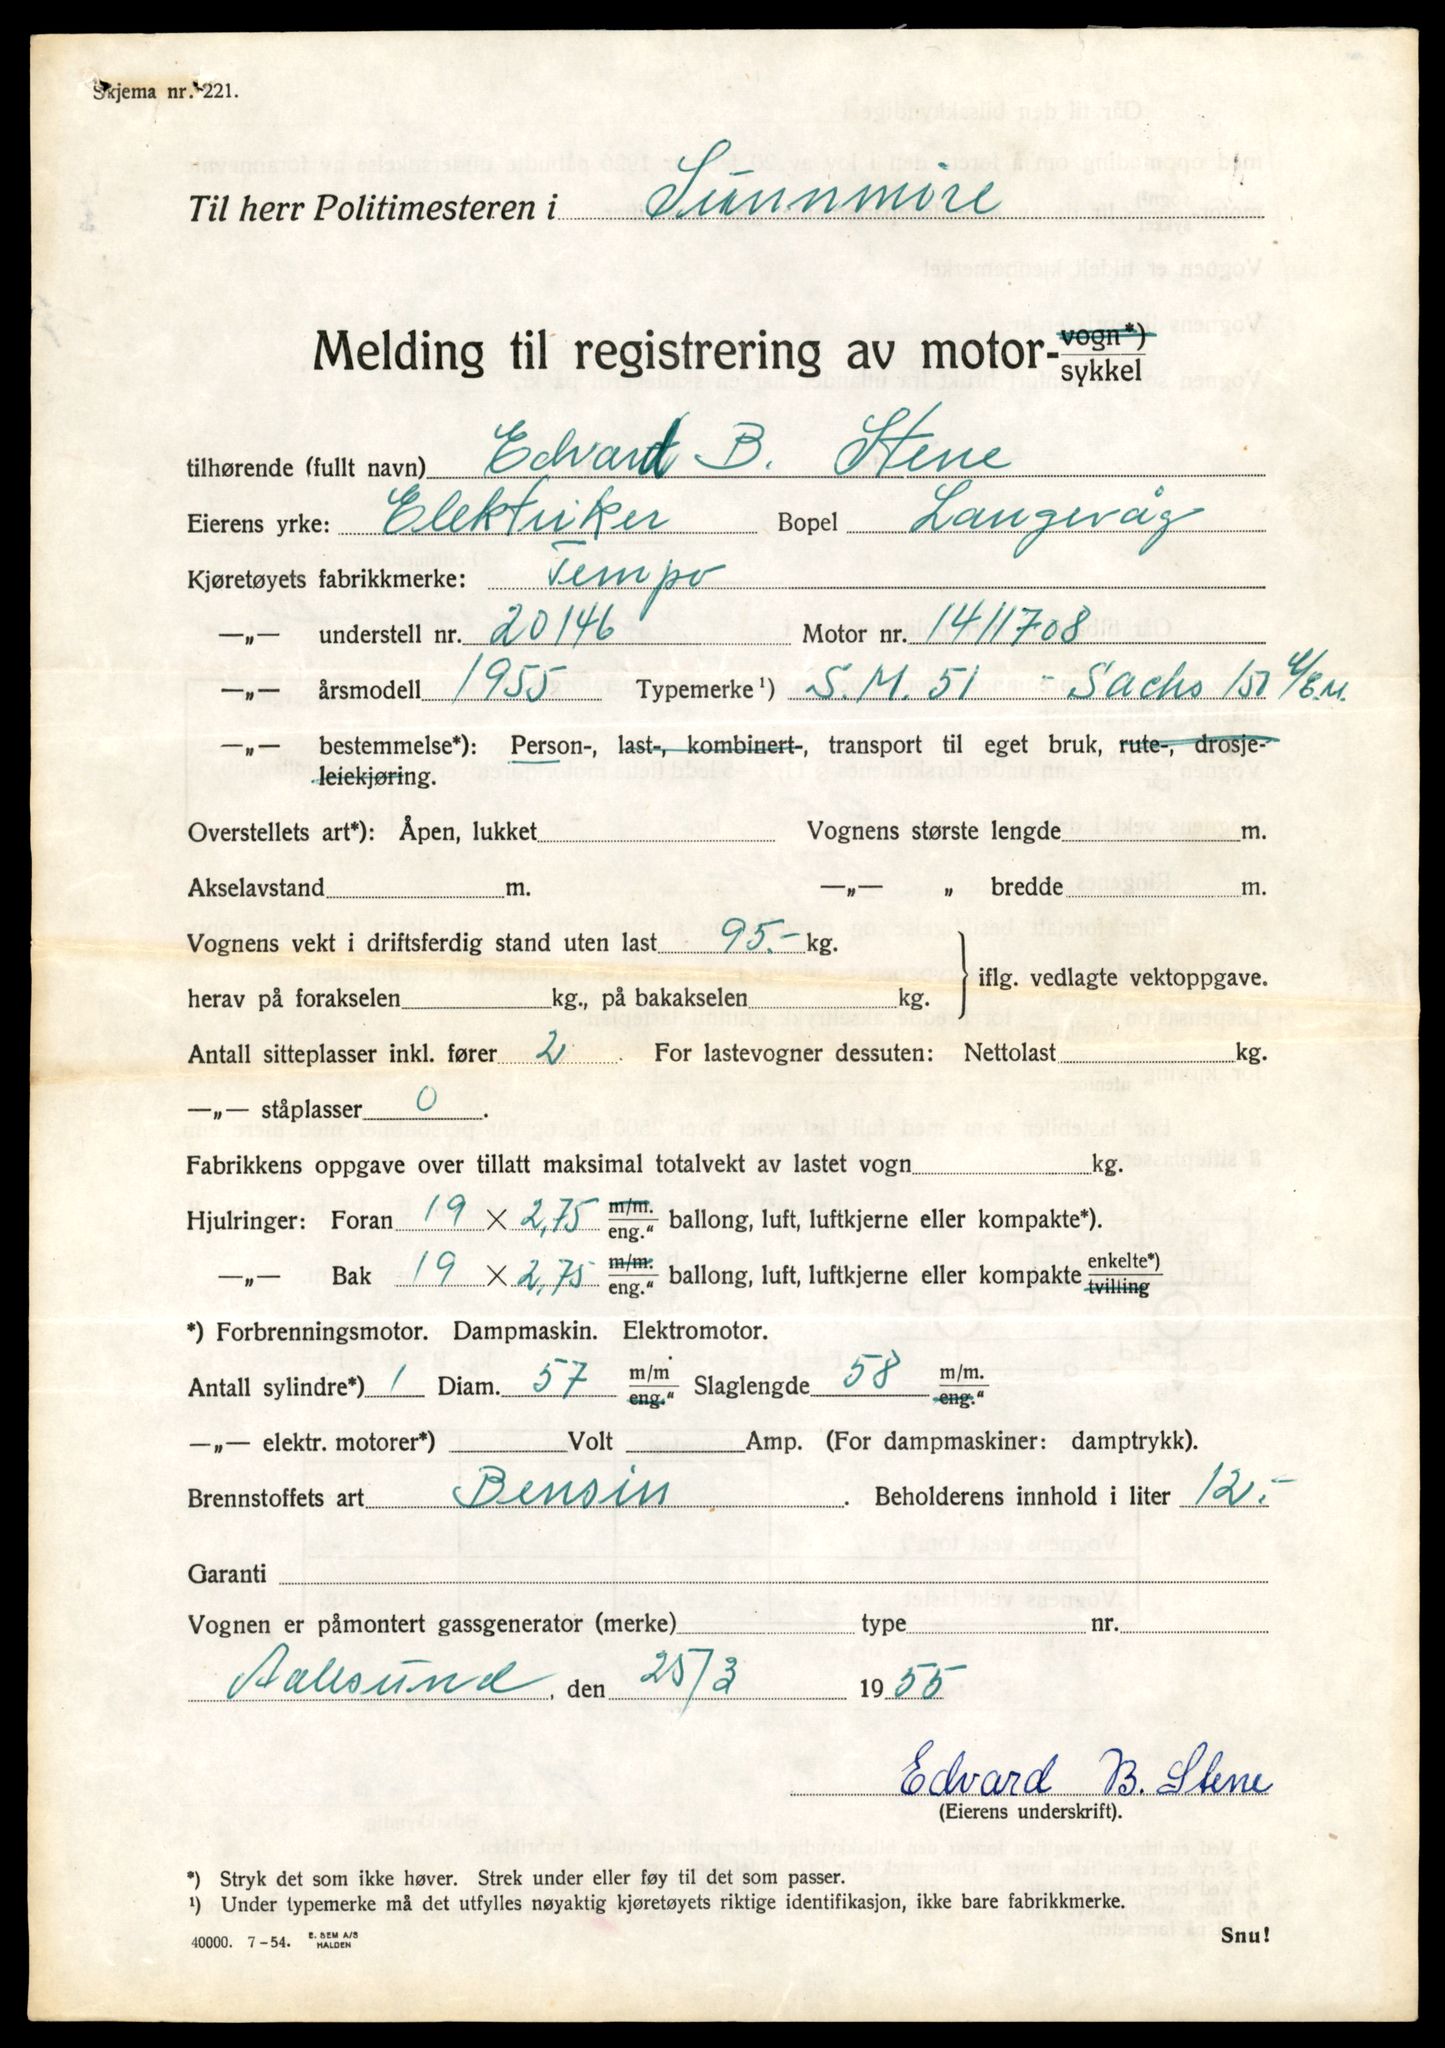 Skjema nr. 221.
Til herr Politimesteren i Sunnmöre
Melding til registrering av motor- vogn*) sykkel
tilhørende (fullt navn) Edvard B. Stene
Eierens yrke: Elektriker Bopel Langevåg
Kjøretøyets fabrikkmerke: Tempo
—„— understell nr. 20146 Motor nr. 1411708
—„— årsmodell 1955 Typemerke¹) S.M. 51 - Sachs 150
—„— bestemmelse*): Person-, last-, kombinert-, transport til eget bruk, rute-, drosje-
leiekjøring.
Overstellets art*): Åpen, lukket Vognens største lengde m.
Akselavstand m. —„— „ bredde m.
Vognens vekt i driftsferdig stand uten last 95.- kg.
herav på forakselen kg., på bakakselen kg. } iflg. vedlagte vektoppgave.
Antall sitteplasser inkl. fører 2. For lastevogner dessuten: Nettolast kg.
—„— ståplasser 0.
Fabrikkens oppgave over tillatt maksimal totalvekt av lastet vogn kg.
Hjulringer: Foran 19 × 2,75 m/m. eng." ballong, luft, luftkjerne eller kompakte*).
—„— Bak 19 × 2,75 m/m. eng." ballong, luft, luftkjerne eller kompakte enkelte*) tvilling
*) Forbrenningsmotor. Dampmaskin. Elektromotor.
Antall sylindre*) 1 Diam. 57 m/m eng." Slaglengde 58 m/m. eng."
—„— elektr. motorer*) Volt Amp. (For dampmaskiner: damptrykk).
Brennstoffets art Bensin. Beholderens innhold i liter 12.-
Garanti
Vognen er påmontert gassgenerator (merke) type nr.
Aalesund, den 25/3 1955
Edvard B. Stene
(Eierens underskrift).
*) Stryk det som ikke høver. Strek under eller føy til det som passer.
¹) Under typemerke må det utfylles nøyaktig kjøretøyets riktige identifikasjon, ikke bare fabrikkmerke.
40000. 7-54. E. SEM A/S HALDEN Snu!